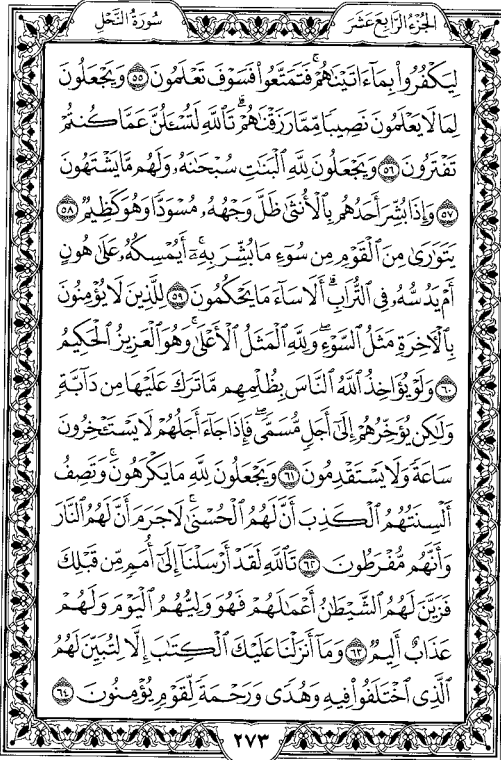 الجزء الرابع عشر
سورة النحل
لِيَكْفُرُوا۟ بِمَآ ءَاتَيْنَٰهُمْ ۚ فَتَمَتَّعُوا۟ ۖ فَسَوْفَ تَعْلَمُونَ ٥٥ وَيَجْعَلُونَ
لِمَا لَا يَعْلَمُونَ نَصِيبًا مِّمَّا رَزَقْنَٰهُمْ ۗ تَٱللَّهِ لَتُسْـَٔلُنَّ عَمَّا كُنتُمْ
تَفْتَرُونَ ٥٦ وَيَجْعَلُونَ لِلَّهِ ٱلْبَنَٰتِ سُبْحَٰنَهُۥ ۙ وَلَهُم مَّا يَشْتَهُونَ
٥٧ وَإِذَا بُشِّرَ أَحَدُهُم بِٱلْأُنثَىٰ ظَلَّ وَجْهُهُۥ مُسْوَدًّا وَهُوَ كَظِيمٌ ٥٨
يَتَوَٰرَىٰ مِنَ ٱلْقَوْمِ مِن سُوٓءِ مَا بُشِّرَ بِهِۦٓ ۚ أَيُمْسِكُهُۥ عَلَىٰ هُونٍ
أَمْ يَدُسُّهُۥ فِى ٱلتُّرَابِ ۗ أَلَا سَآءَ مَا يَحْكُمُونَ ٥٩ لِلَّذِينَ لَا يُؤْمِنُونَ
بِٱلْـَٔاخِرَةِ مَثَلُ ٱلسَّوْءِ ۖ وَلِلَّهِ ٱلْمَثَلُ ٱلْأَعْلَىٰ ۚ وَهُوَ ٱلْعَزِيزُ ٱلْحَكِيمُ
٦٠ وَلَوْ يُؤَاخِذُ ٱللَّهُ ٱلنَّاسَ بِظُلْمِهِم مَّا تَرَكَ عَلَيْهَا مِن دَآبَّةٍ
وَلَٰكِن يُؤَخِّرُهُمْ إِلَىٰٓ أَجَلٍ مُّسَمًّى ۖ فَإِذَا جَآءَ أَجَلُهُمْ لَا يَسْتَـْٔخِرُونَ
سَاعَةً وَلَا يَسْتَقْدِمُونَ ٦١ وَيَجْعَلُونَ لِلَّهِ مَا يَكْرَهُونَ ۚ وَتَصِفُ
أَلْسِنَتُهُمُ ٱلْكَذِبَ أَنَّ لَهُمُ ٱلْحُسْنَىٰ ۖ لَا جَرَمَ أَنَّ لَهُمُ ٱلنَّارَ
وَأَنَّهُم مُّفْرَطُونَ ٦٢ تَٱللَّهِ لَقَدْ أَرْسَلْنَآ إِلَىٰٓ أُمَمٍ مِّن قَبْلِكَ
فَزَيَّنَ لَهُمُ ٱلشَّيْطَٰنُ أَعْمَٰلَهُمْ فَهُوَ وَلِيُّهُمُ ٱلْيَوْمَ وَلَهُمْ
عَذَابٌ أَلِيمٌ ٦٣ وَمَآ أَنزَلْنَا عَلَيْكَ ٱلْكِتَٰبَ إِلَّا لِتُبَيِّنَ لَهُمُ
ٱلَّذِى ٱخْتَلَفُوا۟ فِيهِ ۙ وَهُدًى وَرَحْمَةً لِّقَوْمٍ يُؤْمِنُونَ ٦٤
٢٧٣